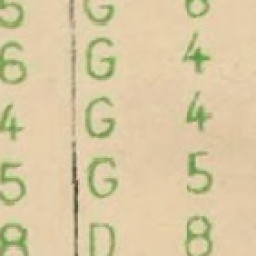 5 G 6
6 G 4
4 G 4
5 G 5
8 D 8